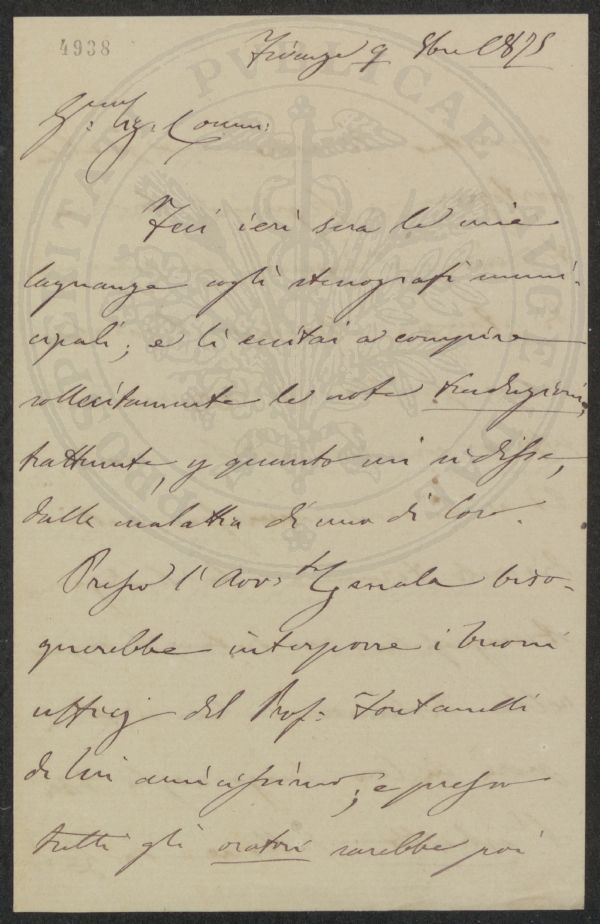 4938
Firenze 9 8bre 1875
Sig. Comm:
Feci ieri sera le mie
lagnanze cogli stenografi muni-
cipali; e li eccitai a compire
sollecitamente le note traduzioni,
trattenute, p quanto mi si disse,
dalla malattia di uno di loro.
Presso l'Avv.to Genala biso-
gnerebbe interporre i buoni
ufficj del Prof. Fontanelli
di lui amicissimo; e presso
tutti gli oratori sarebbe poi
PROSPERITATI PUBLICAE AUGENDAE